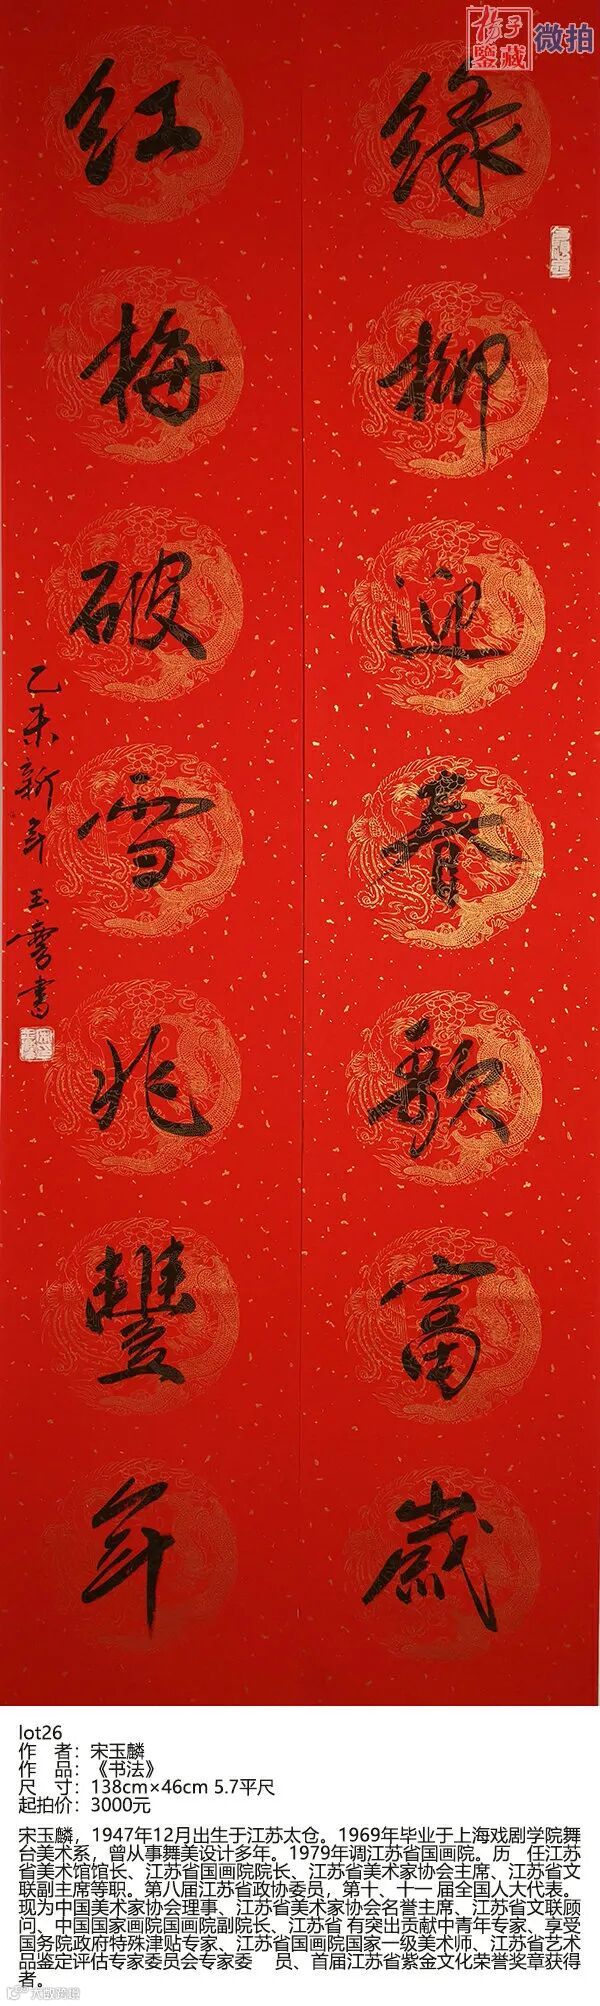 扬子
鉴藏
微拍
缘柳迎春歌富岁
红梅破雪兆豐年
乙未新年
lot26
作 者：宋玉麟
作 品：《书法》
尺 寸：138cm×46cm 5.7平尺
起拍价：3000元
宋玉麟，1947年12月出生于江苏太仓。1969年毕业于上海戏剧学院舞
台美术系，曾从事舞美设计多年。1979年调江苏省国画院。历 任江苏
省美术馆馆长、江苏省国画院院长、江苏省美术家协会主席、江苏省文
联副主席等职。第八届江苏省政协委员，第十、十一 届全国人大代表。
现为中国美术家协会理事、江苏省美术家协会名誉主席、江苏省文联顾
问、中国国家画院国画院副院长、江苏省 有突出贡献中青年专家、享受
国务院政府特殊津贴专家、江苏省国画院国家一级美术师、江苏省艺术
品鉴定评估专家委员会专家委 员、首届江苏省紫金文化荣誉奖章获得
者。